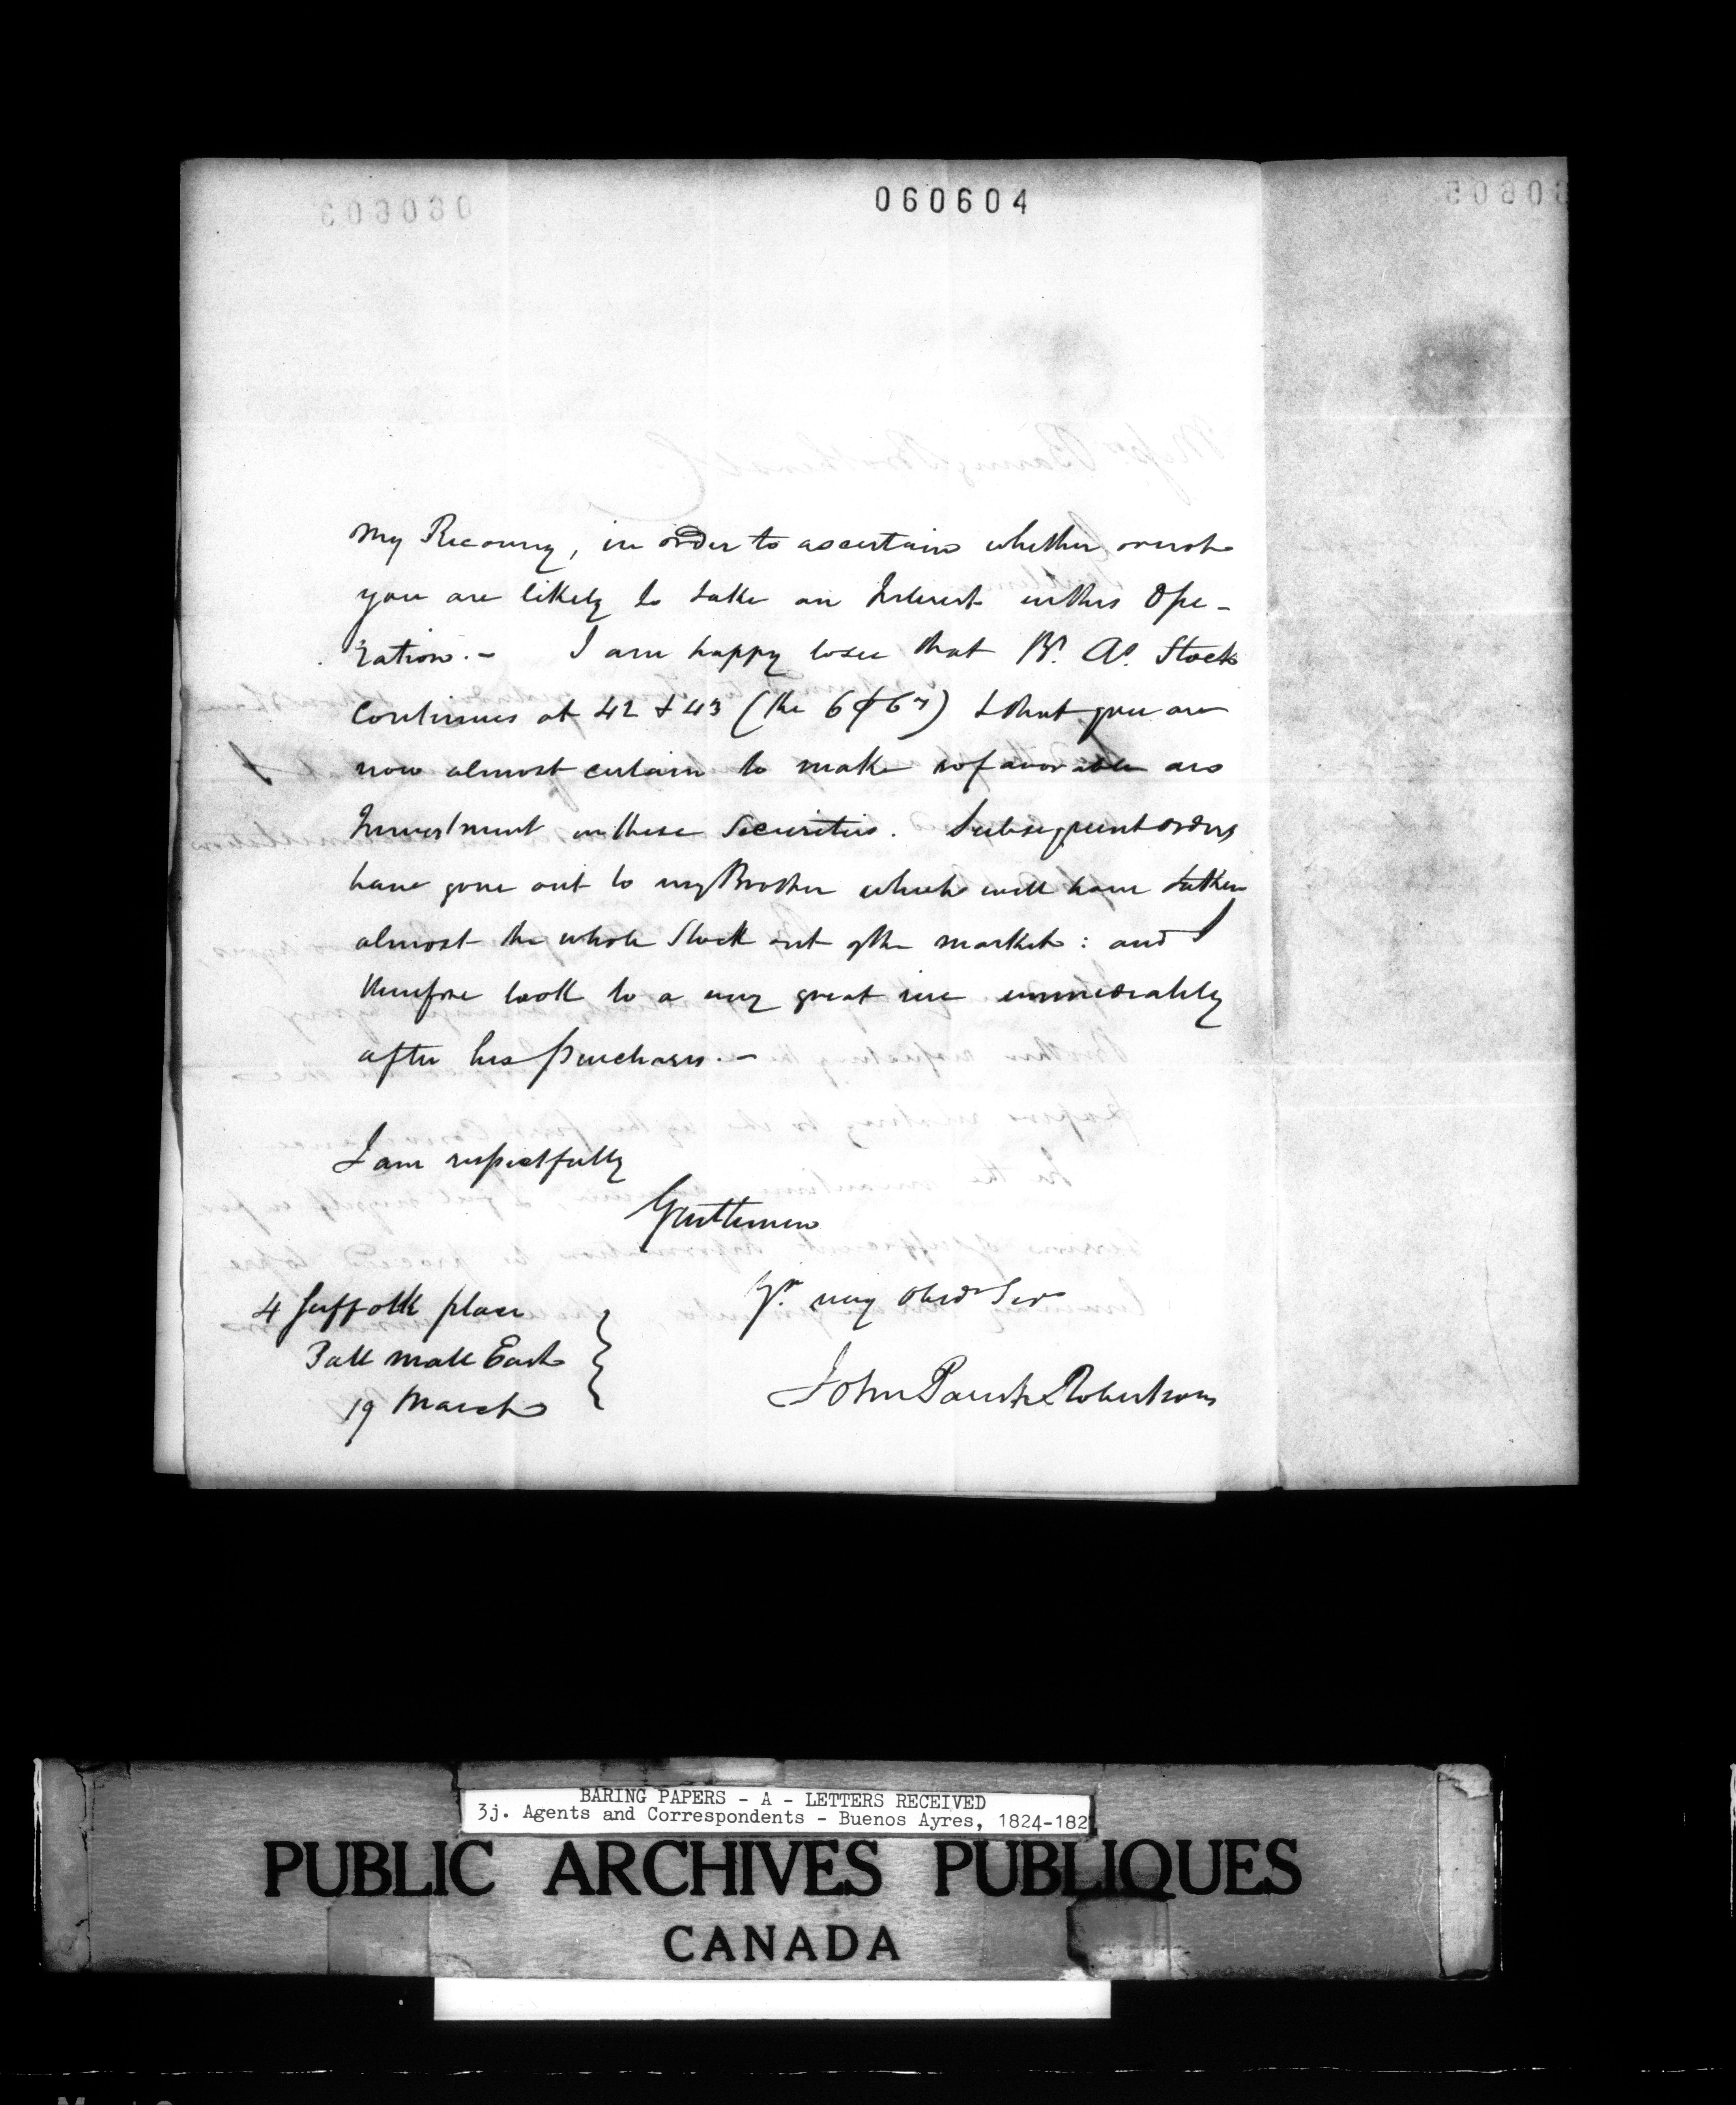 060604
My Recovery, in order to ascertain whether or not
you are likely to take an Interest in this Ope-
ration.- I am happy to see that Bs. As. Stock
continues at 42 & 43 (the 6 ) & that you are
now almost certain to make so favorable an
Investment in these Securities. Subsequent orders
have gone out to my Brother which will have taken
almost the whole Stock out of the market: and I
therefore look to a very great rise immediately
after his purchases.-
I am respectfully
Gentlemen
Yr. very Obedt Servt
John Parish Robertson
4 Suffolk place
Pall Mall East
19 March
BARING PAPERS - A - LETTERS RECEIVED
3j. Agents and Correspondents - Buenos Ayres, 1824-182
PUBLIC ARCHIVES PUBLIQUES
CANADA